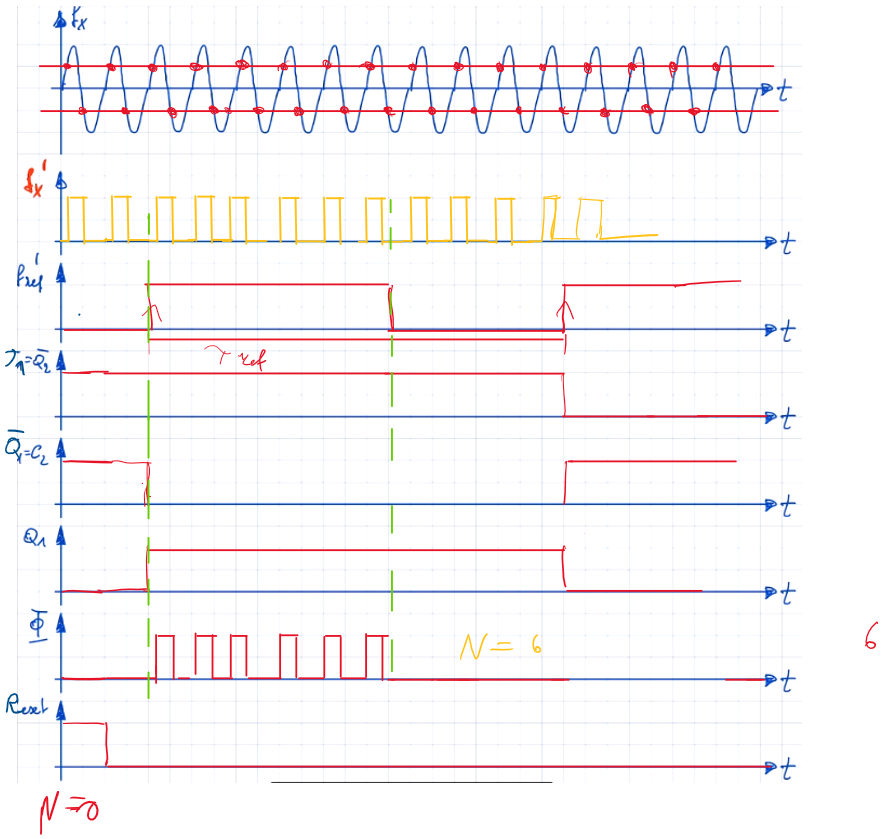 fx
t
fx'
t
fref'
t
τ ref
J1=Q̅2
t
Q̅1=C2
t
Q1
t
Φ
N = 6
6
t
Reset
t
N=0